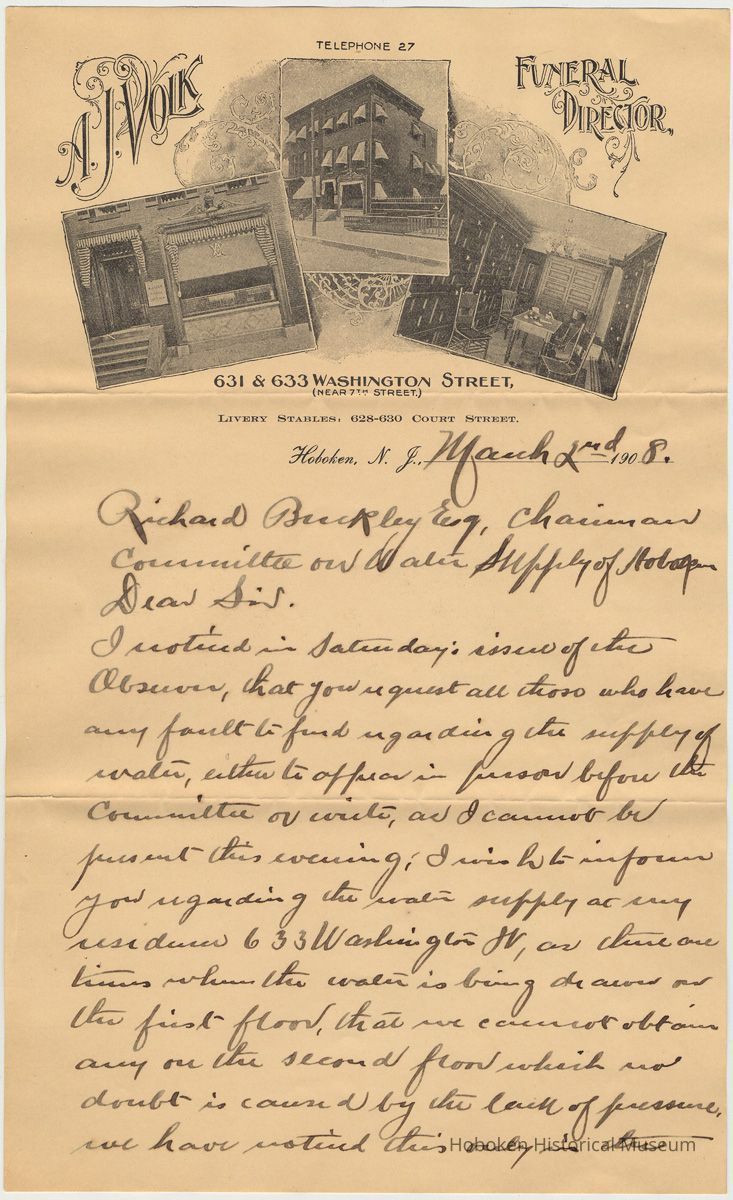 TELEPHONE 27
A. J. VOLK
FUNERAL DIRECTOR,
631 & 633 WASHINGTON STREET,
(NEAR 7TH STREET.)
LIVERY STABLES: 628-630 COURT STREET.
Hoboken, N. J., March 2nd 1908.
Richard Buckley Esq, Chairman
Committee on Water Supply of Hoboken
Dear Sir.
I noticed in Saturday's issue of the
Observer, that you request all those who have
any fault to find regarding the supply of
water, either to appear in person before the
Committee or write, as I cannot be
present this evening, I wish to inform
you regarding the water supply at my
residence 633 Washington St, as there are
times when the water is being drawn on
the first floor, that we cannot obtain
any on the second floor which no
doubt is caused by the lack of pressure,
we have noticed this
Hoboken Historical Museum